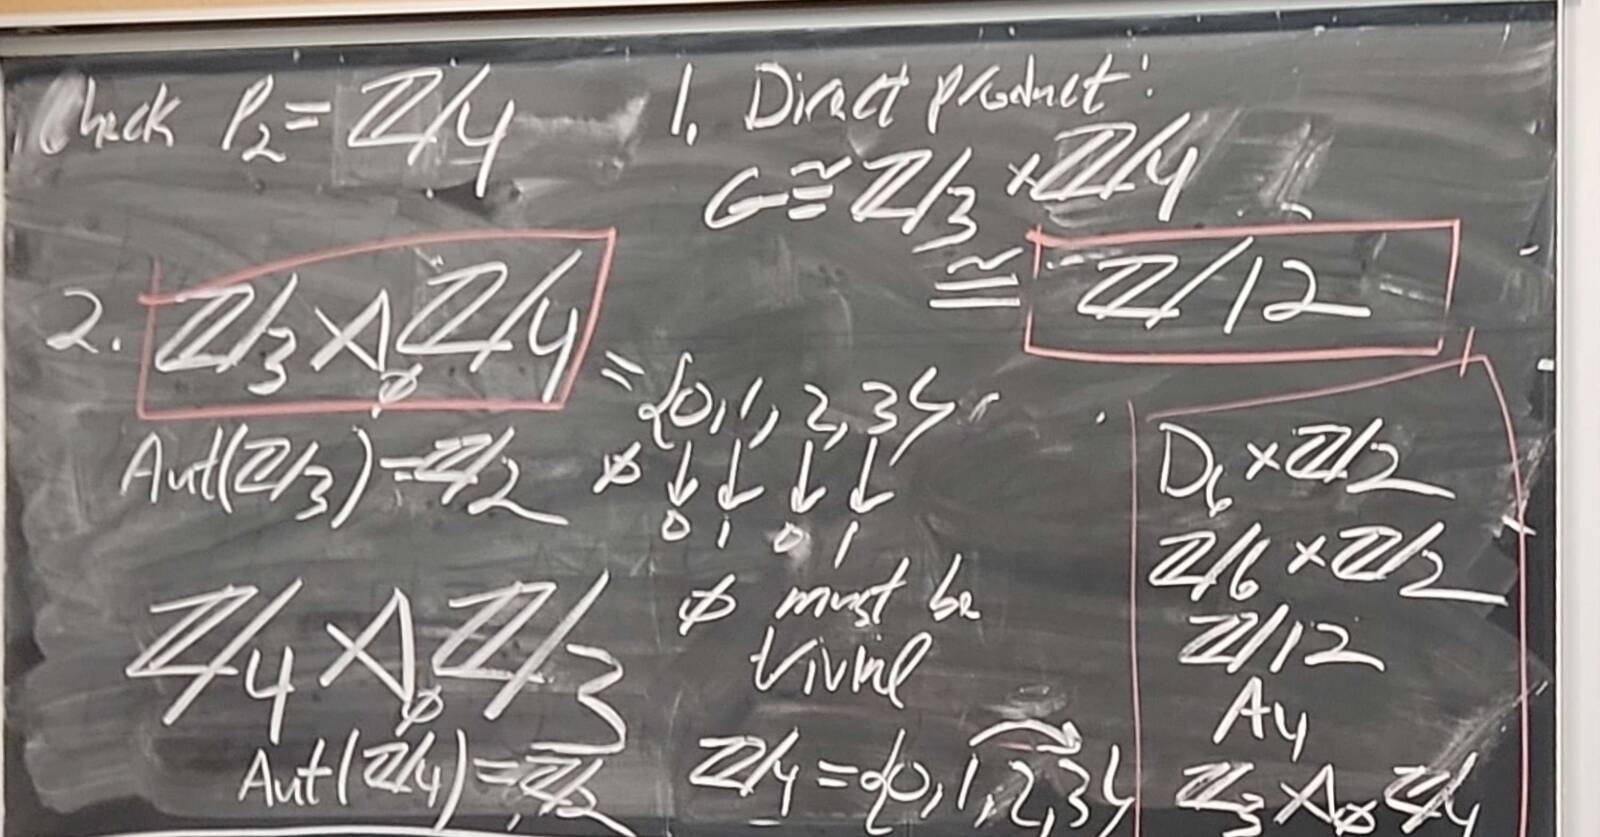 Check P₂ = ℤ/4
1. Direct product:
G ≅ ℤ/3 × ℤ/4
≅ ℤ/12
2. ℤ/3 ⋊_ø ℤ/4 = {0, 1, 2, 3}
Aut(ℤ/3) = ℤ/2 ø ↓ ↓ ↓ ↓
0 1 0 1
ℤ/4 ⋊_ø ℤ/3 ø must be
trivial
Aut(ℤ/4) = ℤ/2 ℤ/4 = {0, 1, 2, 3}
D₆ × ℤ/2
ℤ/6 × ℤ/2
ℤ/12
A₄
ℤ/3 ⋊_ø ℤ/4